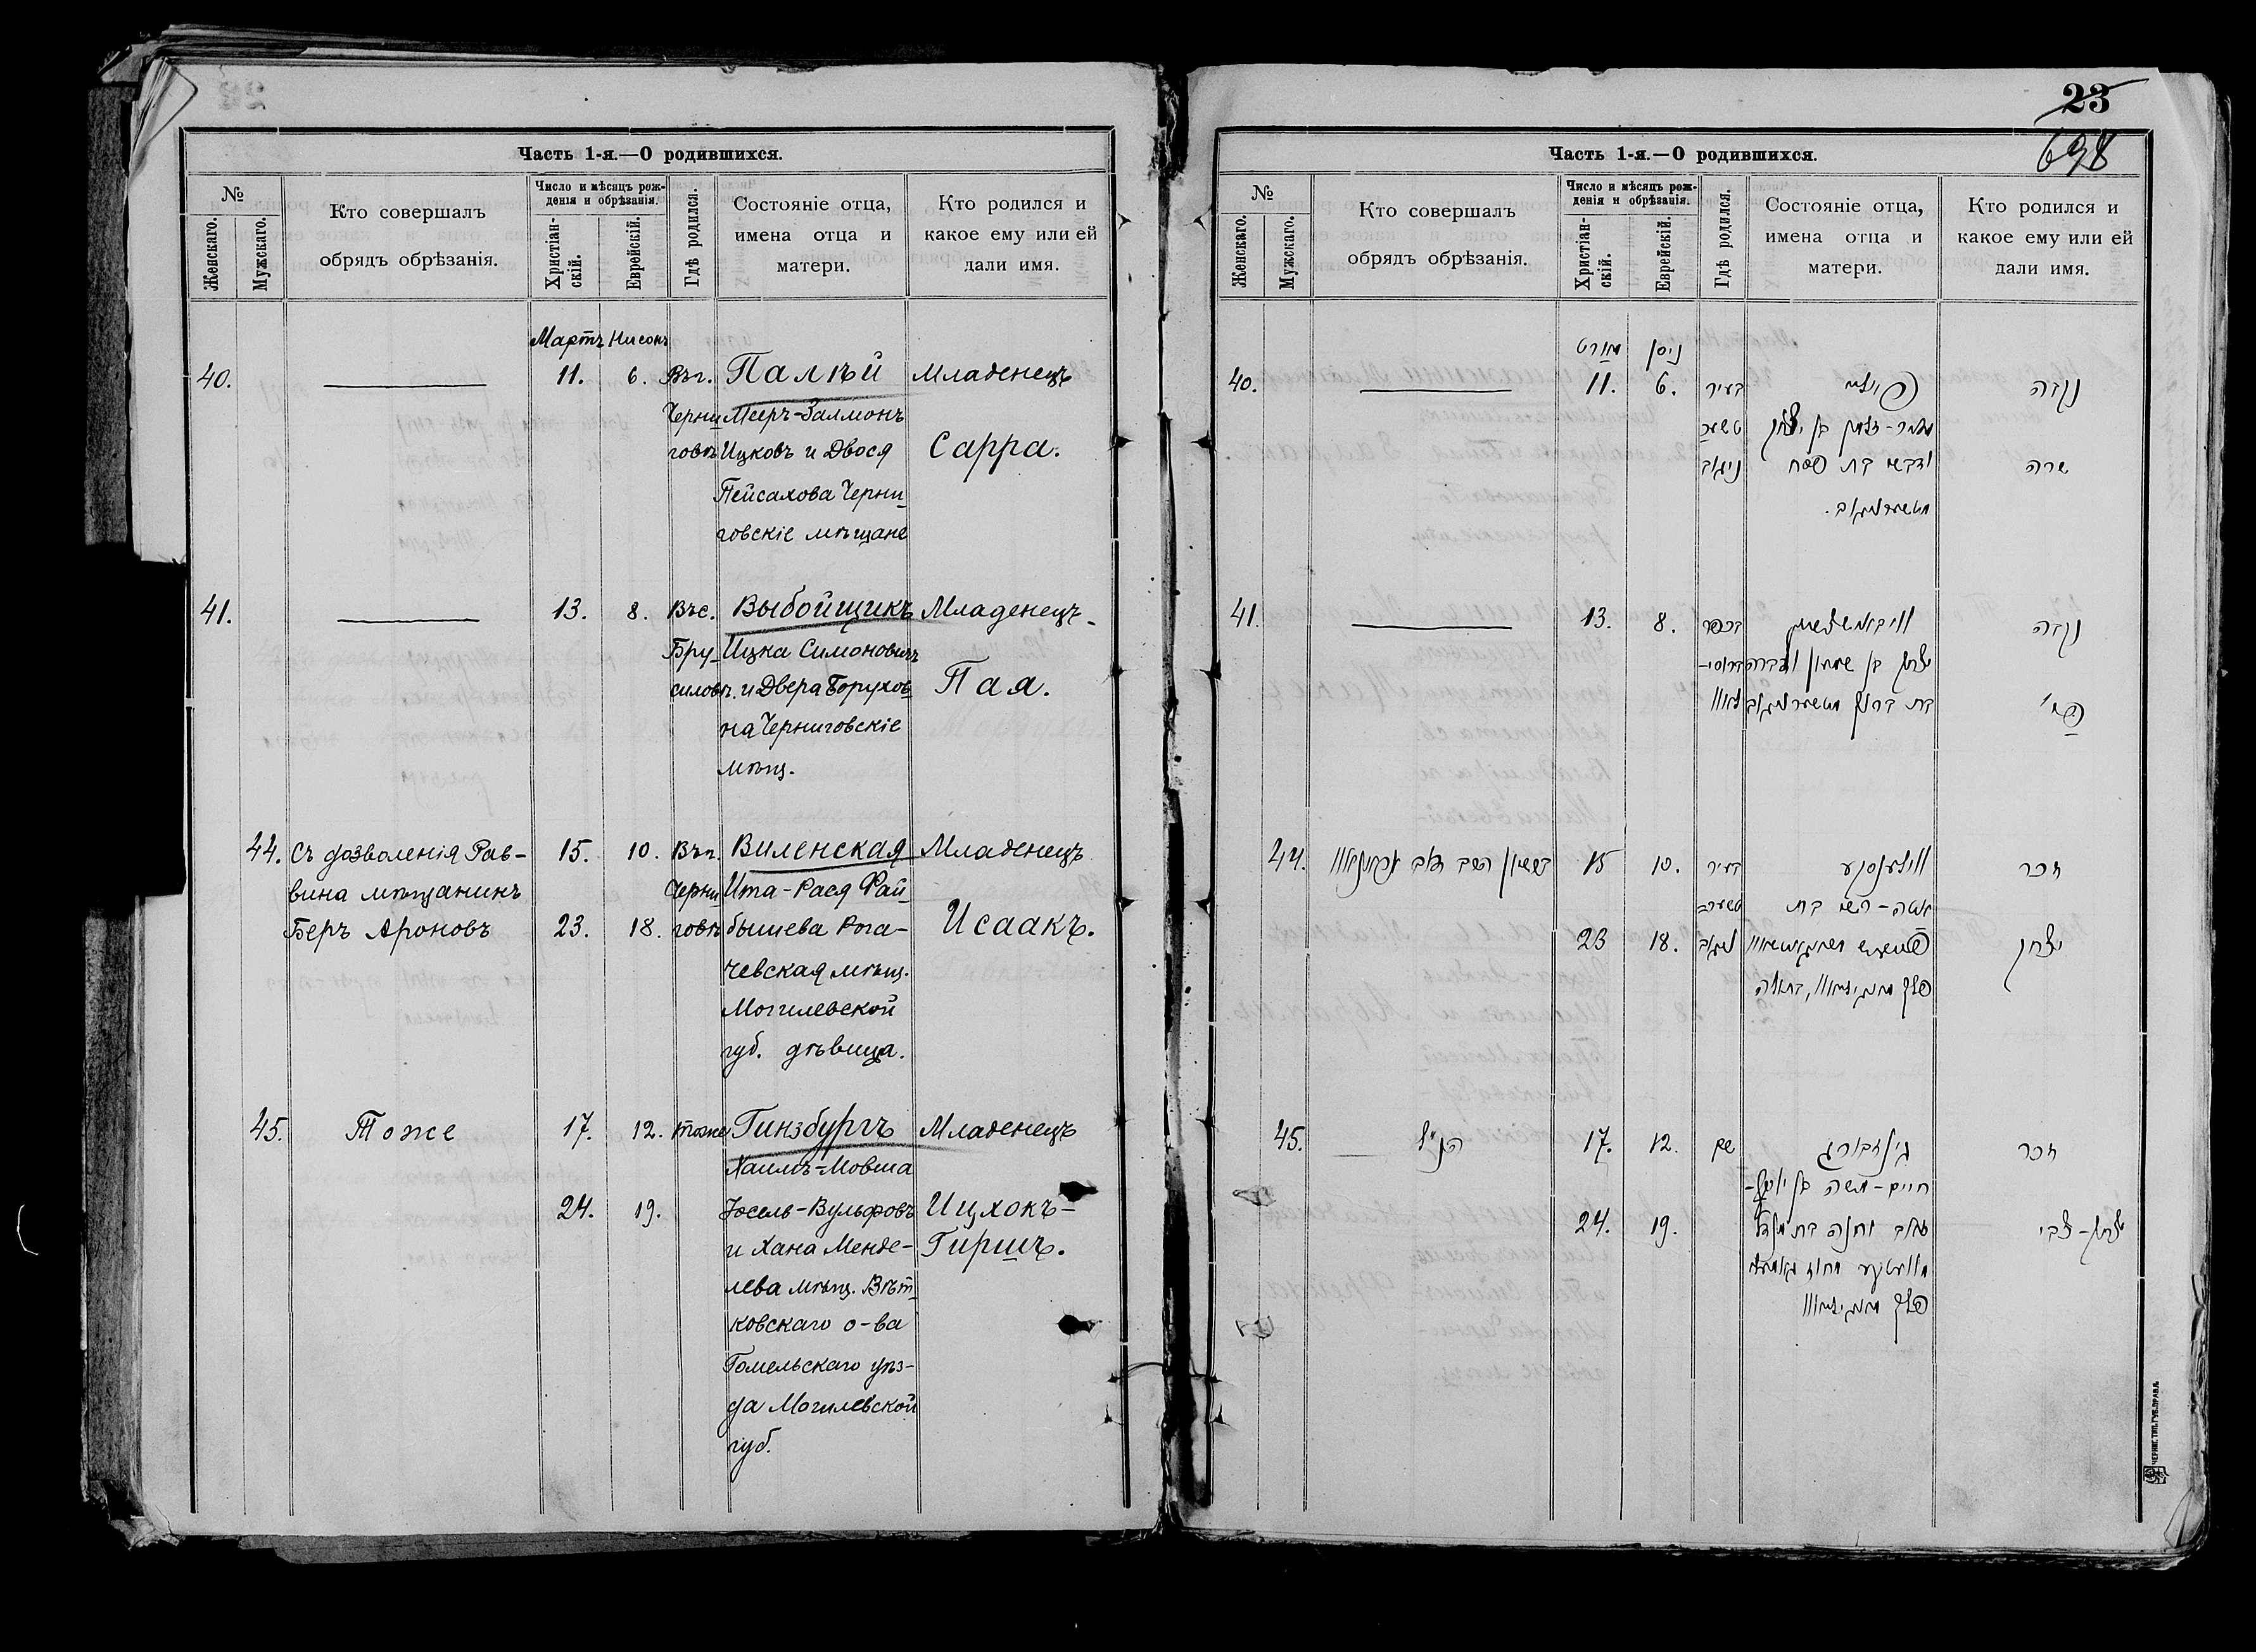 Часть 1-я.—О родившихся.
№
Женскаго.
Мужскаго.
Кто совершалъ
обрядъ обрѣзанія.
Число и мѣсяцъ рож-
денія и обрѣзанія.
Христіан-
скій.
Еврейскій.
Гдѣ родился.
Состояніе отца,
имена отца и
матери.
Кто родился и
какое ему или ей
дали имя.
Мартъ Нисонъ
40.
11. 6.
Въ г.
Черни
говѣ
Палѣй
Мееръ-Залмонъ
Ицковъ и Двося
Пейсахова Черни
говскіе мѣщане
Младенецъ
Сарра.
41.
13. 8.
Въ с.
Бру-
силовѣ.
Выбойщикъ
Ицка Симоновичъ
и Двера Борухов
на Черниговскіе
мѣщ.
Младенецъ
Пая.
44.
Съ дозволенія Рав-
вина мѣщанинъ
Беръ Ароновъ
15. 10.
23. 18.
Въ г.
Черни
говѣ
Виленская
Ита-Рася Фай-
бышева Рога-
чевская мѣщ.
Могилевской
губ. дѣвица.
Младенецъ
Исаакъ.
45.
Тоже
17. 12.
24. 19.
тоже
Гинзбургъ
Хаимъ-Мовша
Іосель-Вульфовъ
и Хана Менде-
лева мѣщ. Вѣт-
ковскаго о-ва
Гомельскаго уѣз-
да Могилевской
губ.
Младенецъ
Ицхокъ-
Гиршъ.
23
698
Часть 1-я.—О родившихся.
№
Женскаго.
Мужскаго.
Кто совершалъ
обрядъ обрѣзанія.
Число и мѣсяцъ рож-
денія и обрѣзанія.
Христіан-
скій.
Еврейскій.
Гдѣ родился.
Состояніе отца,
имена отца и
матери.
Кто родился и
какое ему или ей
дали имя.
מארט ניסן
40.
11. 6.
בעיר
בן יצחק
בת פסח
נקבה
שרה
41.
13. 8.
בכפר
יצחק בן שמעון
בת ברוך
נקבה
44.
15 10.
23 18.
בעיר
בת
זכר
יצחק
45.
הנ״ל
17. 12.
24. 19.
שם
גינזבורג
חיים-משה בן יוסף-
זאב וחנה בת מענדל
זכר
יצחק-צבי
ЧЕРНИГ. ТИП. ГУБ. ПРАВЛ.